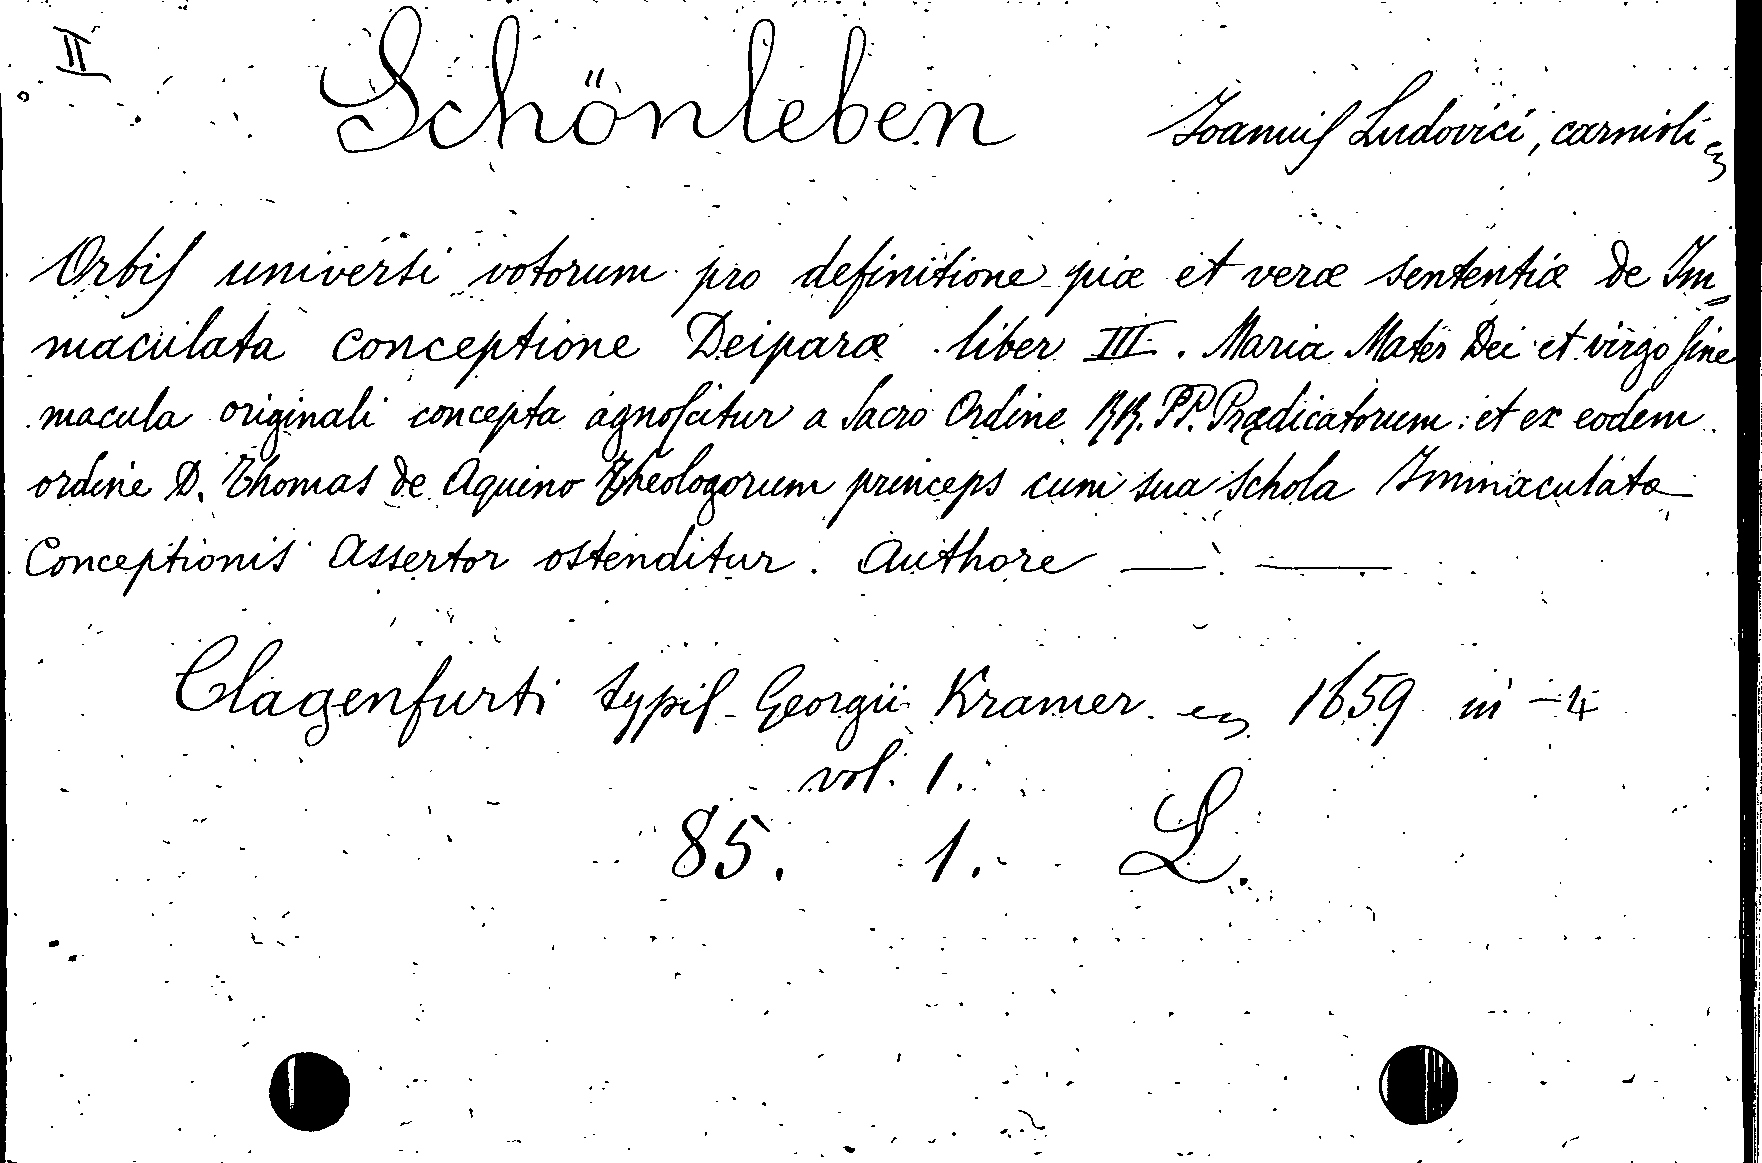 II
Schönleben Joannis Ludovici, carnioli
Orbis universi votorum pro definitione piæ et veræ sententiæ de Im=
maculata conceptione Deiparæ liber III. Maria Mater Dei et virgo sine
macula originali concepta agnoscitur a Sacro Ordine RR. PP. Prædicatorum: et ex eodem
ordine D. Thomas de Aquino Theologorum princeps cum sua schola Immaculatæ
Conceptionis Assertor ostenditur. Authore — —
Clagenfurti typis Georgii Kramer 1659 in-4
vol. 1.
85. 1. L.